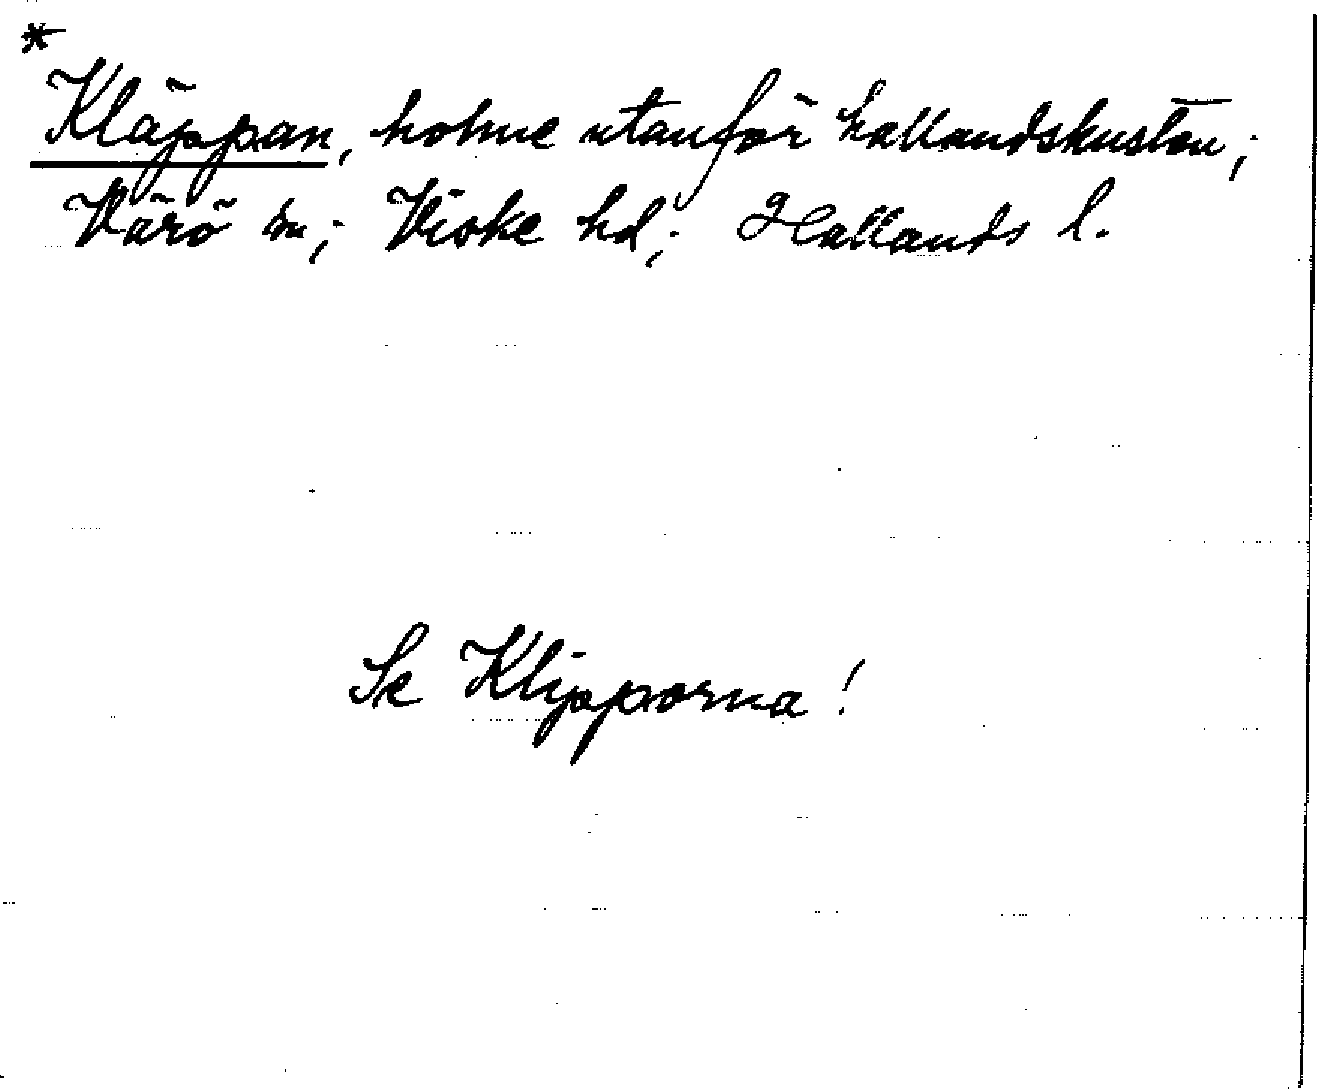 *
Kläppan, holme utanför hallandskusten;
Värö sn; Viske hd; Hallands l.
Se Klipporna!